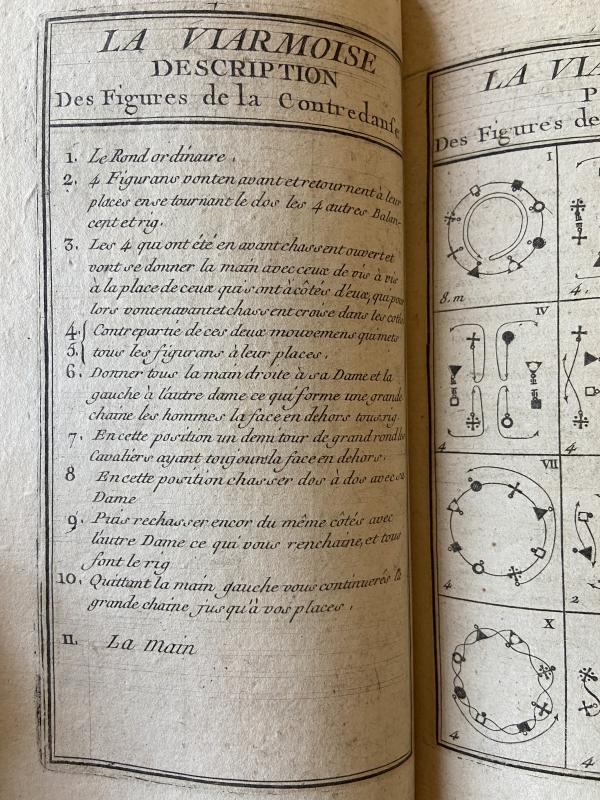 LA VIARMOISE
DESCRIPTION
Des Figures de la Contredanse
1. Le Rond ordinaire.
2. 4 Figurans vont en avant et retournent à leur
places en se tournant le dos les 4 autres Balan-
cent et rig.
3. Les 4 qui ont été en avant chassent ouvert et
vont se donner la main avec ceux de vis à vis
à la place de ceux qui sont à côtés d'eux, qui pour
lors vont en avant et chassent croisé dans les
4. Contrepartie de ces deux mouvemens qui mets
5. tous les figurans à leur places.
6. Donner tous la main droite à sa Dame et la
gauche à l'autre dame ce qui forme une grande
chaine les hommes la face en dehors tous rig.
7. En cette position un demi tour de grand rond les
Cavaliers ayant toujours la face en dehors.
8 En cette position chasser dos à dos avec sa
Dame
9. Puis rechasser encor du même côtés avec
l'autre Dame ce qui vous renchaine, et tous
font le rig
10. Quittant la main gauche vous continuerés la
grande chaine jusqu'à vos places.
11. La main
LA VIA
P
Des Figures de
I
8. m
4.
IV
4
4
VII
4
2
X
4
4